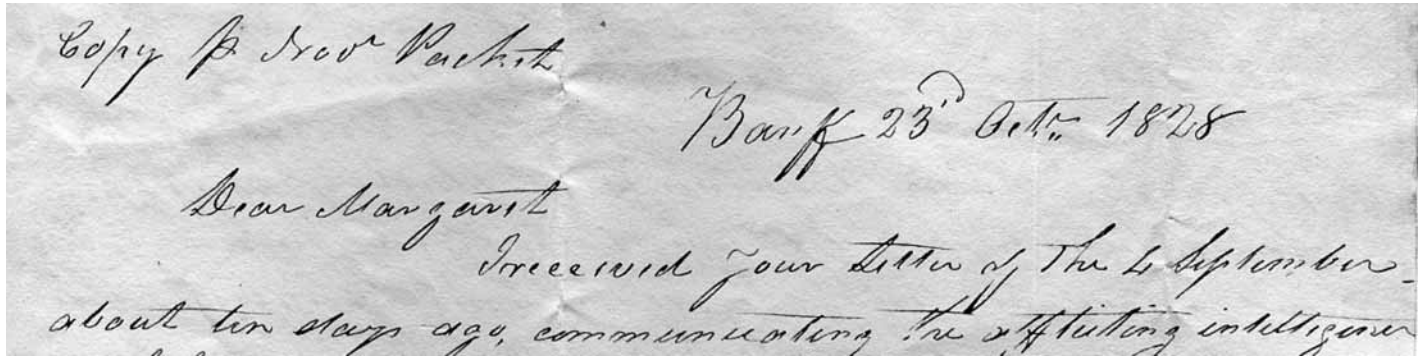 Copy ⅌ Novr Packet
Banff 23d Octr. 1828
Dear Margaret
I received your Letter of the 4 September
about ten days ago, communicating the afflicting intelligence